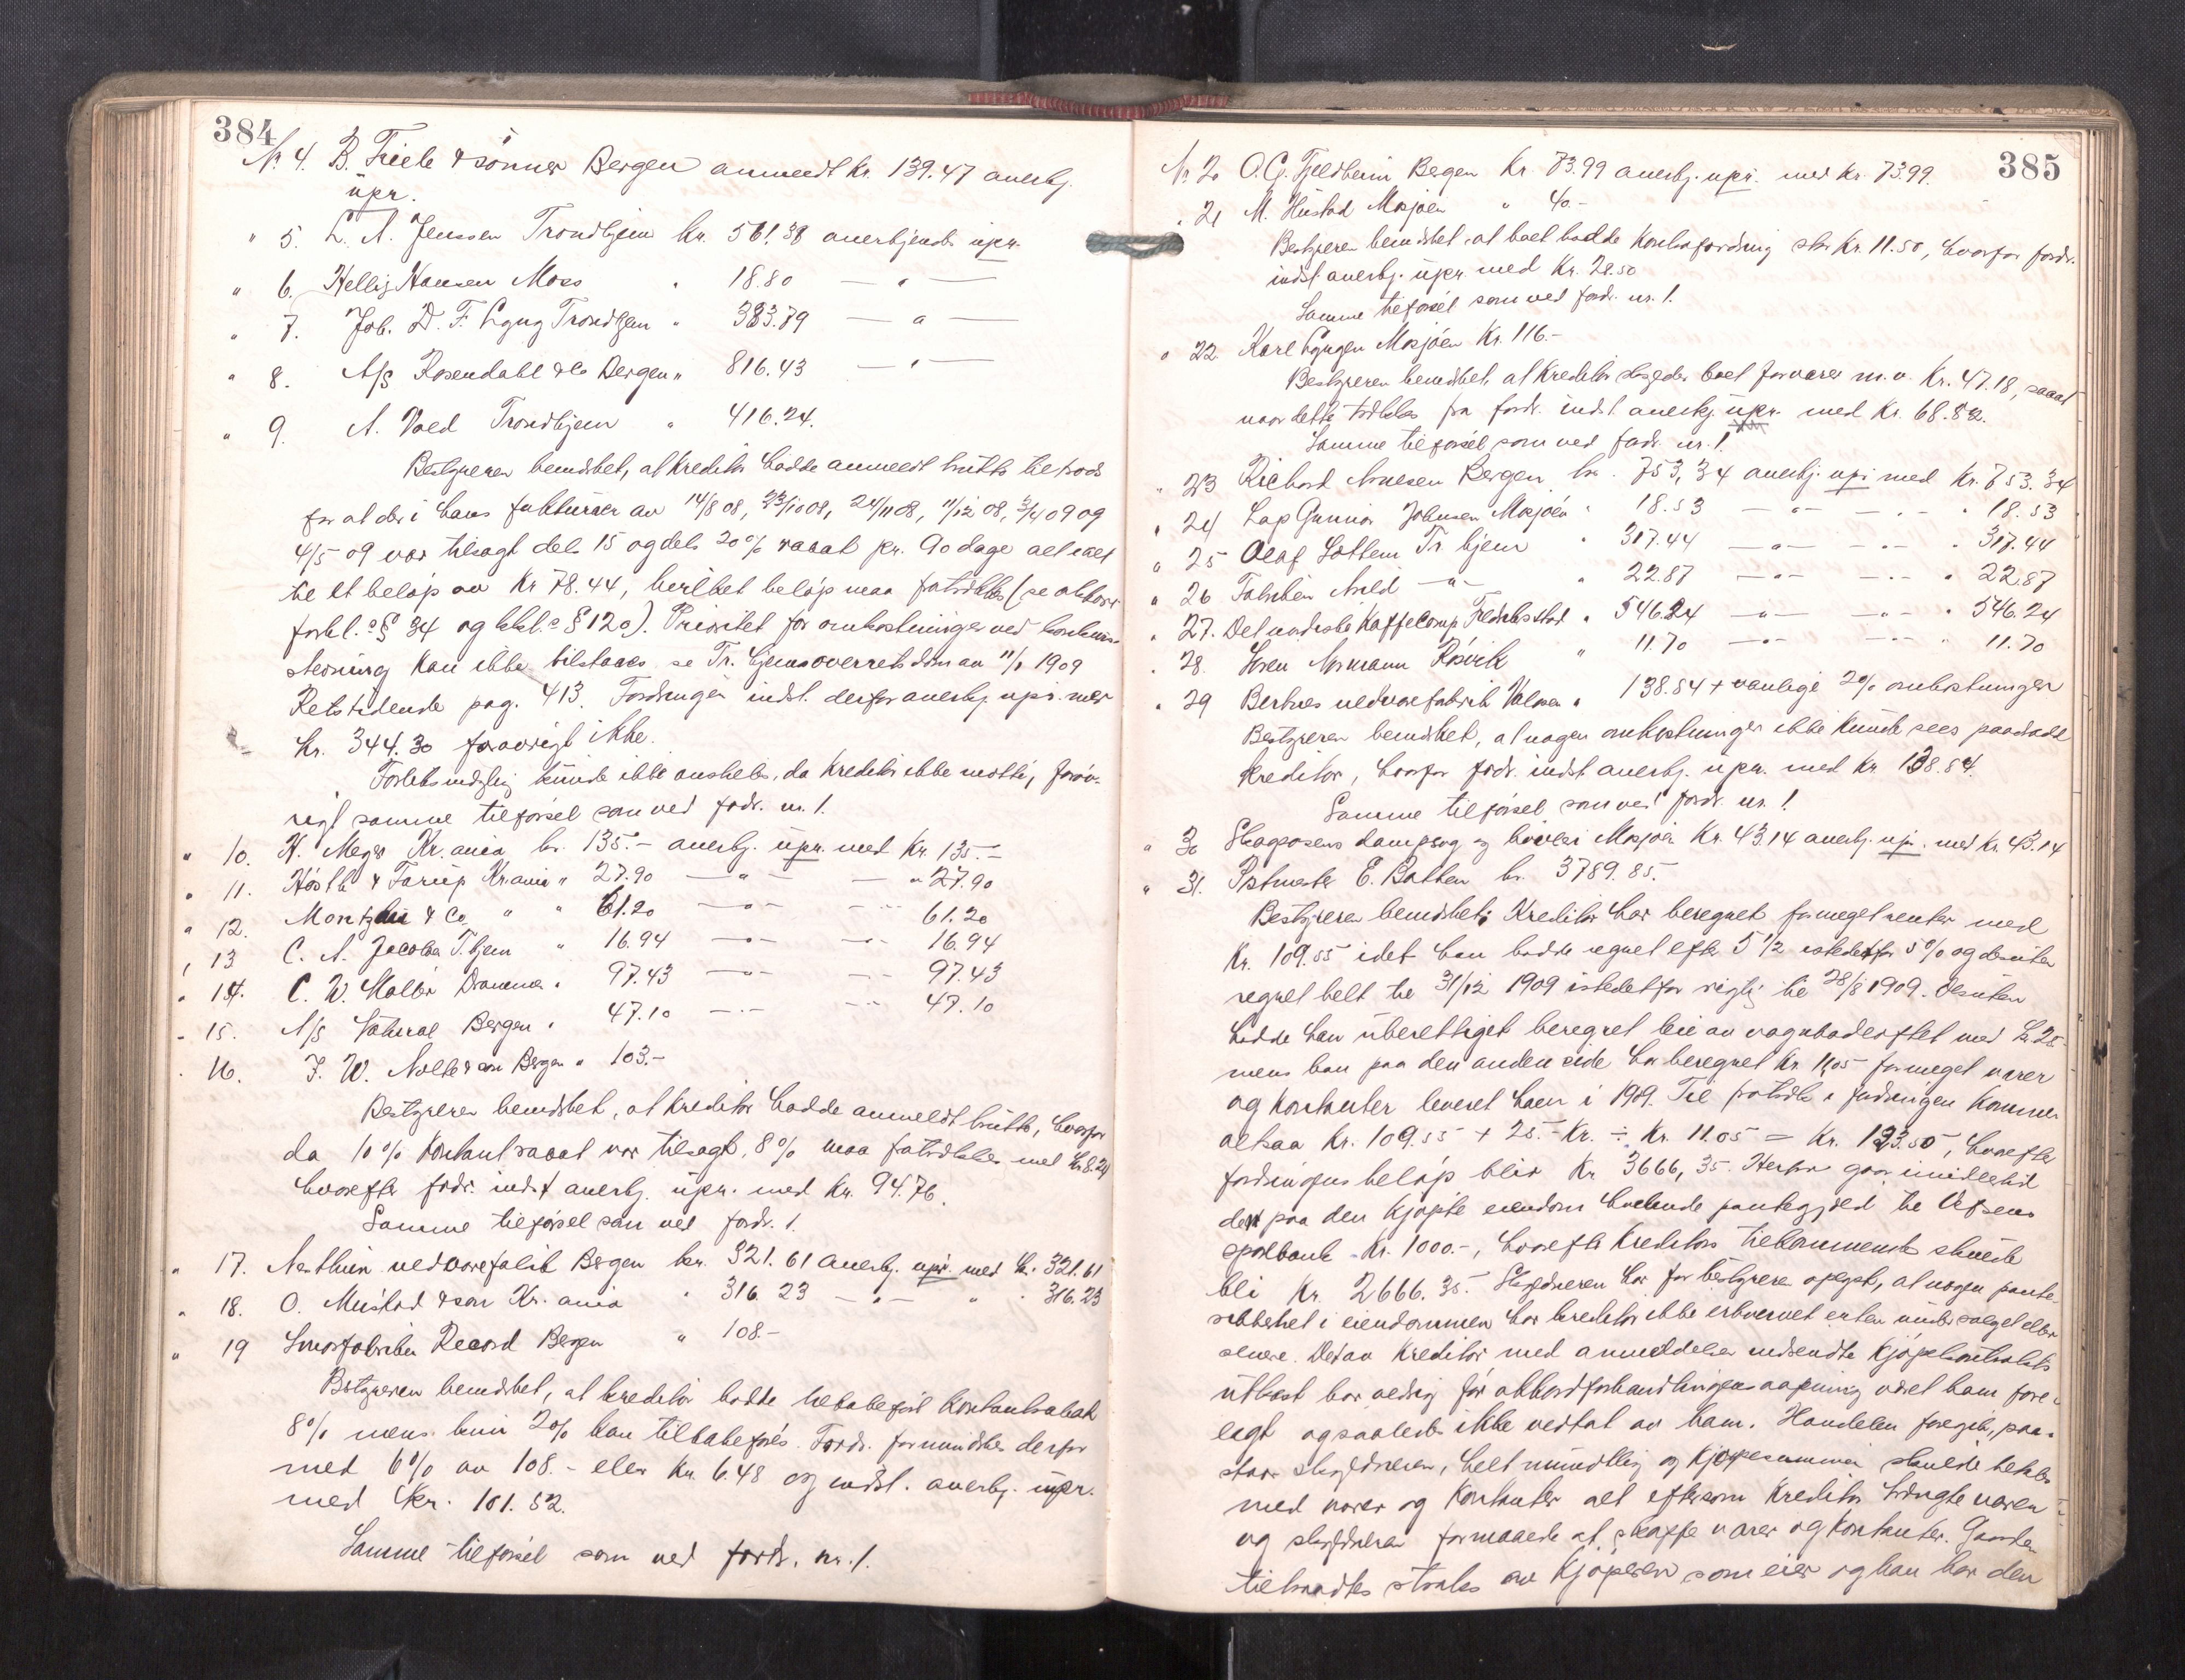 384
Nr. 4. B. Friele & sönner Bergen anmeldt kr. 139.47 anerkj.
upr.
" 5. L. A. Jenssen Trondhjem kr. 561.38 anerkjendt upr.
" 6. Hellig Hansen Moss " 18.80 — " —
" 7. Joh. D. F. Lyng Trondhjem " 383.79 — " —
" 8. A/S Rosendahl & Co Bergen " 816.43 — " —
" 9. A. Vold Trondhjem " 416.24.
Bestyreren bemerket, at kreditor hadde anmeldt brutto tiltrods
for at der i hans fakturaer av 14/8 08, 23/10 08, 24/11 08, 11/12 08, 3/4 09 og
4/5 09 var tilsagt dels 15 og dels 20% rabat pr. 90 dage alt ialt
til et beløp av Kr 78.44, hvilket beløp maa fratrækkes (se akkord
forhl. § 34 og kkl. § 120). Prioritet for omkostninger ved
kan ikke tilstaaes se Tr. hjems overrets dom av 11/1 1909
Retstidende pag. 413. Fordringen indst. derfor anerkj. upr. med
Kr. 344.30 forøvrigt ikke.
Forliksmægling kunde ikke anstilles, da kreditor ikke møtte, forøv-
rigt samme tilførsel som ved fordr. nr. 1.
" 10. H. Meyer Kr.ania kr. 135.- anerkj. upr. med Kr. 135.-
" 11. Høsth & Farup Kr.ania " 27.90 — " — — " 27.90
" 12. & Co " " 61.20 — " — — " — 61.20
" 13 C. A. Jacobsen T.hjem " 16.94 — " — — " — 16.94
" 14. C. W. Møller Drammen " 97.43 — " — — " — 97.43
" 15. A/S Bergen " 47.10 — " — — " — 47.10
" 16. F. W. Nolte & søn Bergen " 103.-
Bestyreren bemerket, at kreditor hadde anmeldt brutto, hvorfor
da 10% kontantrabat var tilsagt, 8% maa fratrækkes med kr. 8.24
hvorefter fordr. indst anerkj. upr. med Kr. 94.76.
Samme tilførsel som ved fordr. 1.
" 17. Nesttun uldvarefabrik Bergen kr. 321.61 anerkj. upr. med kr. 321.61
" 18. O. Mustad & søn Kr.ania " 316.23 — " — " " 316.23
" 19 Smørfabriken Record Bergen " 108.-
Bestyreren bemerket, at kreditor hadde tilbakeført kontantrabat
8% mens kun 2% kan tilbakeføres. Fordr. formindskes derfor
med 6% av 108.- eller Kr. 6.48 og indst. anerkj. upr.
med Kr. 101.52.
Samme tilførsel som ved fordr. nr. 1.
385
Nr. 20 O. G. Fjeldheim Bergen Kr. 73.99 anerkj. upr. med Kr. 73.99.
" 21 M. Hustad Mosjøen " 40.-
Bestyreren bemerket at boet hadde kontrafordring stor Kr. 11.50, hvorfor fordr.
indst. anerkj. upr. med Kr. 28.50
Samme tilførsel som ved fordr. nr. 1.
" 22 Karl Lyngen Mosjøen Kr. 116.-
Bestyreren bemerket, at kreditor skylder boet for varer m.v. Kr. 47.18, saaat
naar dette trækkes fra fordr. indst. anerkj. upr. med Kr. 68.82.
Samme tilførsel som ved fordr. nr. 1.
" 23 Richard Bergen kr. 753,34 anerkj. upr. med Kr. 753.34
" 24 Gunnar Johnsen Mosjøen " 18.53 — " — — " — " 18.53
" 25 Olaf Løttem Tr.hjem " 317.44 — " — — " — " 317.44
" 26 Fabriken Arild — " — " 22.87 — " — — " — " 22.87
" 27. Det nordiske Kaffecomp. Fredrikstad " 546.24 — " — — " — " 546.24
" 28. Søren Normann Rørvik " 11.70 — " — — " — " 11.70
" 29 Berknes uldvarefabrik " 138.84 + vanlige 2% omkostninger
Bestyreren bemerket, at nogen omkostninger ikke kunde sees
kreditor, hvorfor fordr. indst anerkj. upr. med Kr 138.84.
Samme tilførsel som ved fordr. nr. 1
" 30 Skagosens dampsag og høvleri Mosjøen Kr. 43.14 anerkj. upr. med Kr. 43.14
" 31. Postmester E. Bakken kr. 3789.85.
Bestyreren bemerket: Kreditor har beregnet formeget renter med
Kr. 109.55 idet han hadde regnet efter 5 1/2 istedetfor 5% og desuten
regnet helt til 31/12 1909 istedetfor rigtig til 28/8 1909. Desuten
hadde han uberettiget beregnet leie av med Kr. 25.-
mens han paa den anden side har beregnet Kr. 11.05 formeget varer
og kontanter leveret ham i 1909. Til fratræk i fordringen kommer
altsaa Kr. 109.55 + 25.- Kr. ÷ Kr. 11.05 = Kr. 123.50, hvorefter
fordringens beløp blir Kr. 3666,35. Herfra gaar imidlertid
den paa den kjøpte eiendom heftende pantegjæld til Vefsens
sparebank Kr. 1000.-, hvorefter kreditors tilkommende skulde
bli Kr. 2666.35. Skyldneren har for bestyrere opgit, at nogen pante-
sikkerhet i eiendommen har kreditor ikke erhvervet enten under salget eller
senere. Det av kreditor med anmeldelsen indsendte kjøpekontrakts
utkast har aldrig før akkordforhandlingens aapning været ham fore-
lagt og saaledes ikke vedtat av ham. Handelen foregik, paa-
staar skyldneren, helt mundtlig og kjøpesummen skulde betales
med varer og kontanter alt eftersom kreditor trængte varen
og skyldneren formaaede at skaffe varer og kontanter. Gaarden
tiltraadtes straks av kjøperen som eier og han har den